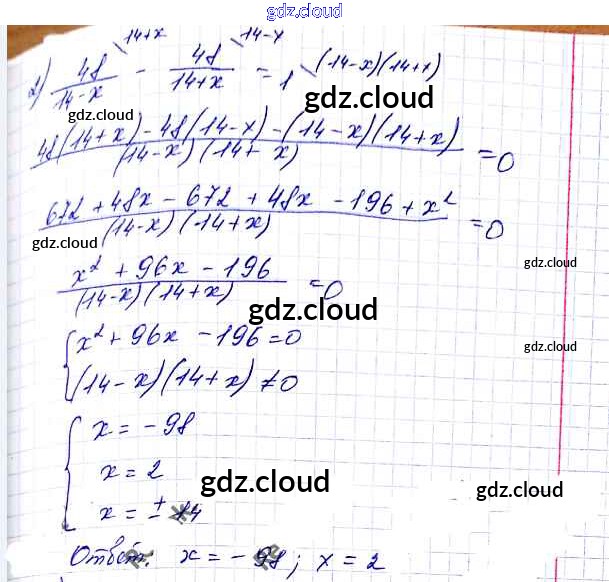 gdz.cloud
2) 48/(14-x) \14+x - 48/(14+x) \14-x = 1 \(14-x)(14+x)
gdz.cloud
gdz.cloud
48(14+x) - 48(14-x) - (14-x)(14+x) / (14-x)(14+x) = 0
gdz.cloud
672 + 48x - 672 + 48x - 196 + x² / (14-x)(14+x) = 0
gdz.cloud
gdz.cloud
x² + 96x - 196 / (14-x)(14+x) = 0
gdz.cloud
{ x² + 96x - 196 = 0
gdz.cloud
(14-x)(14+x) ≠ 0
{ x = -98
x = 2
gdz.cloud
x = ± 14
gdz.cloud
Ответ: x = -98; x = 2